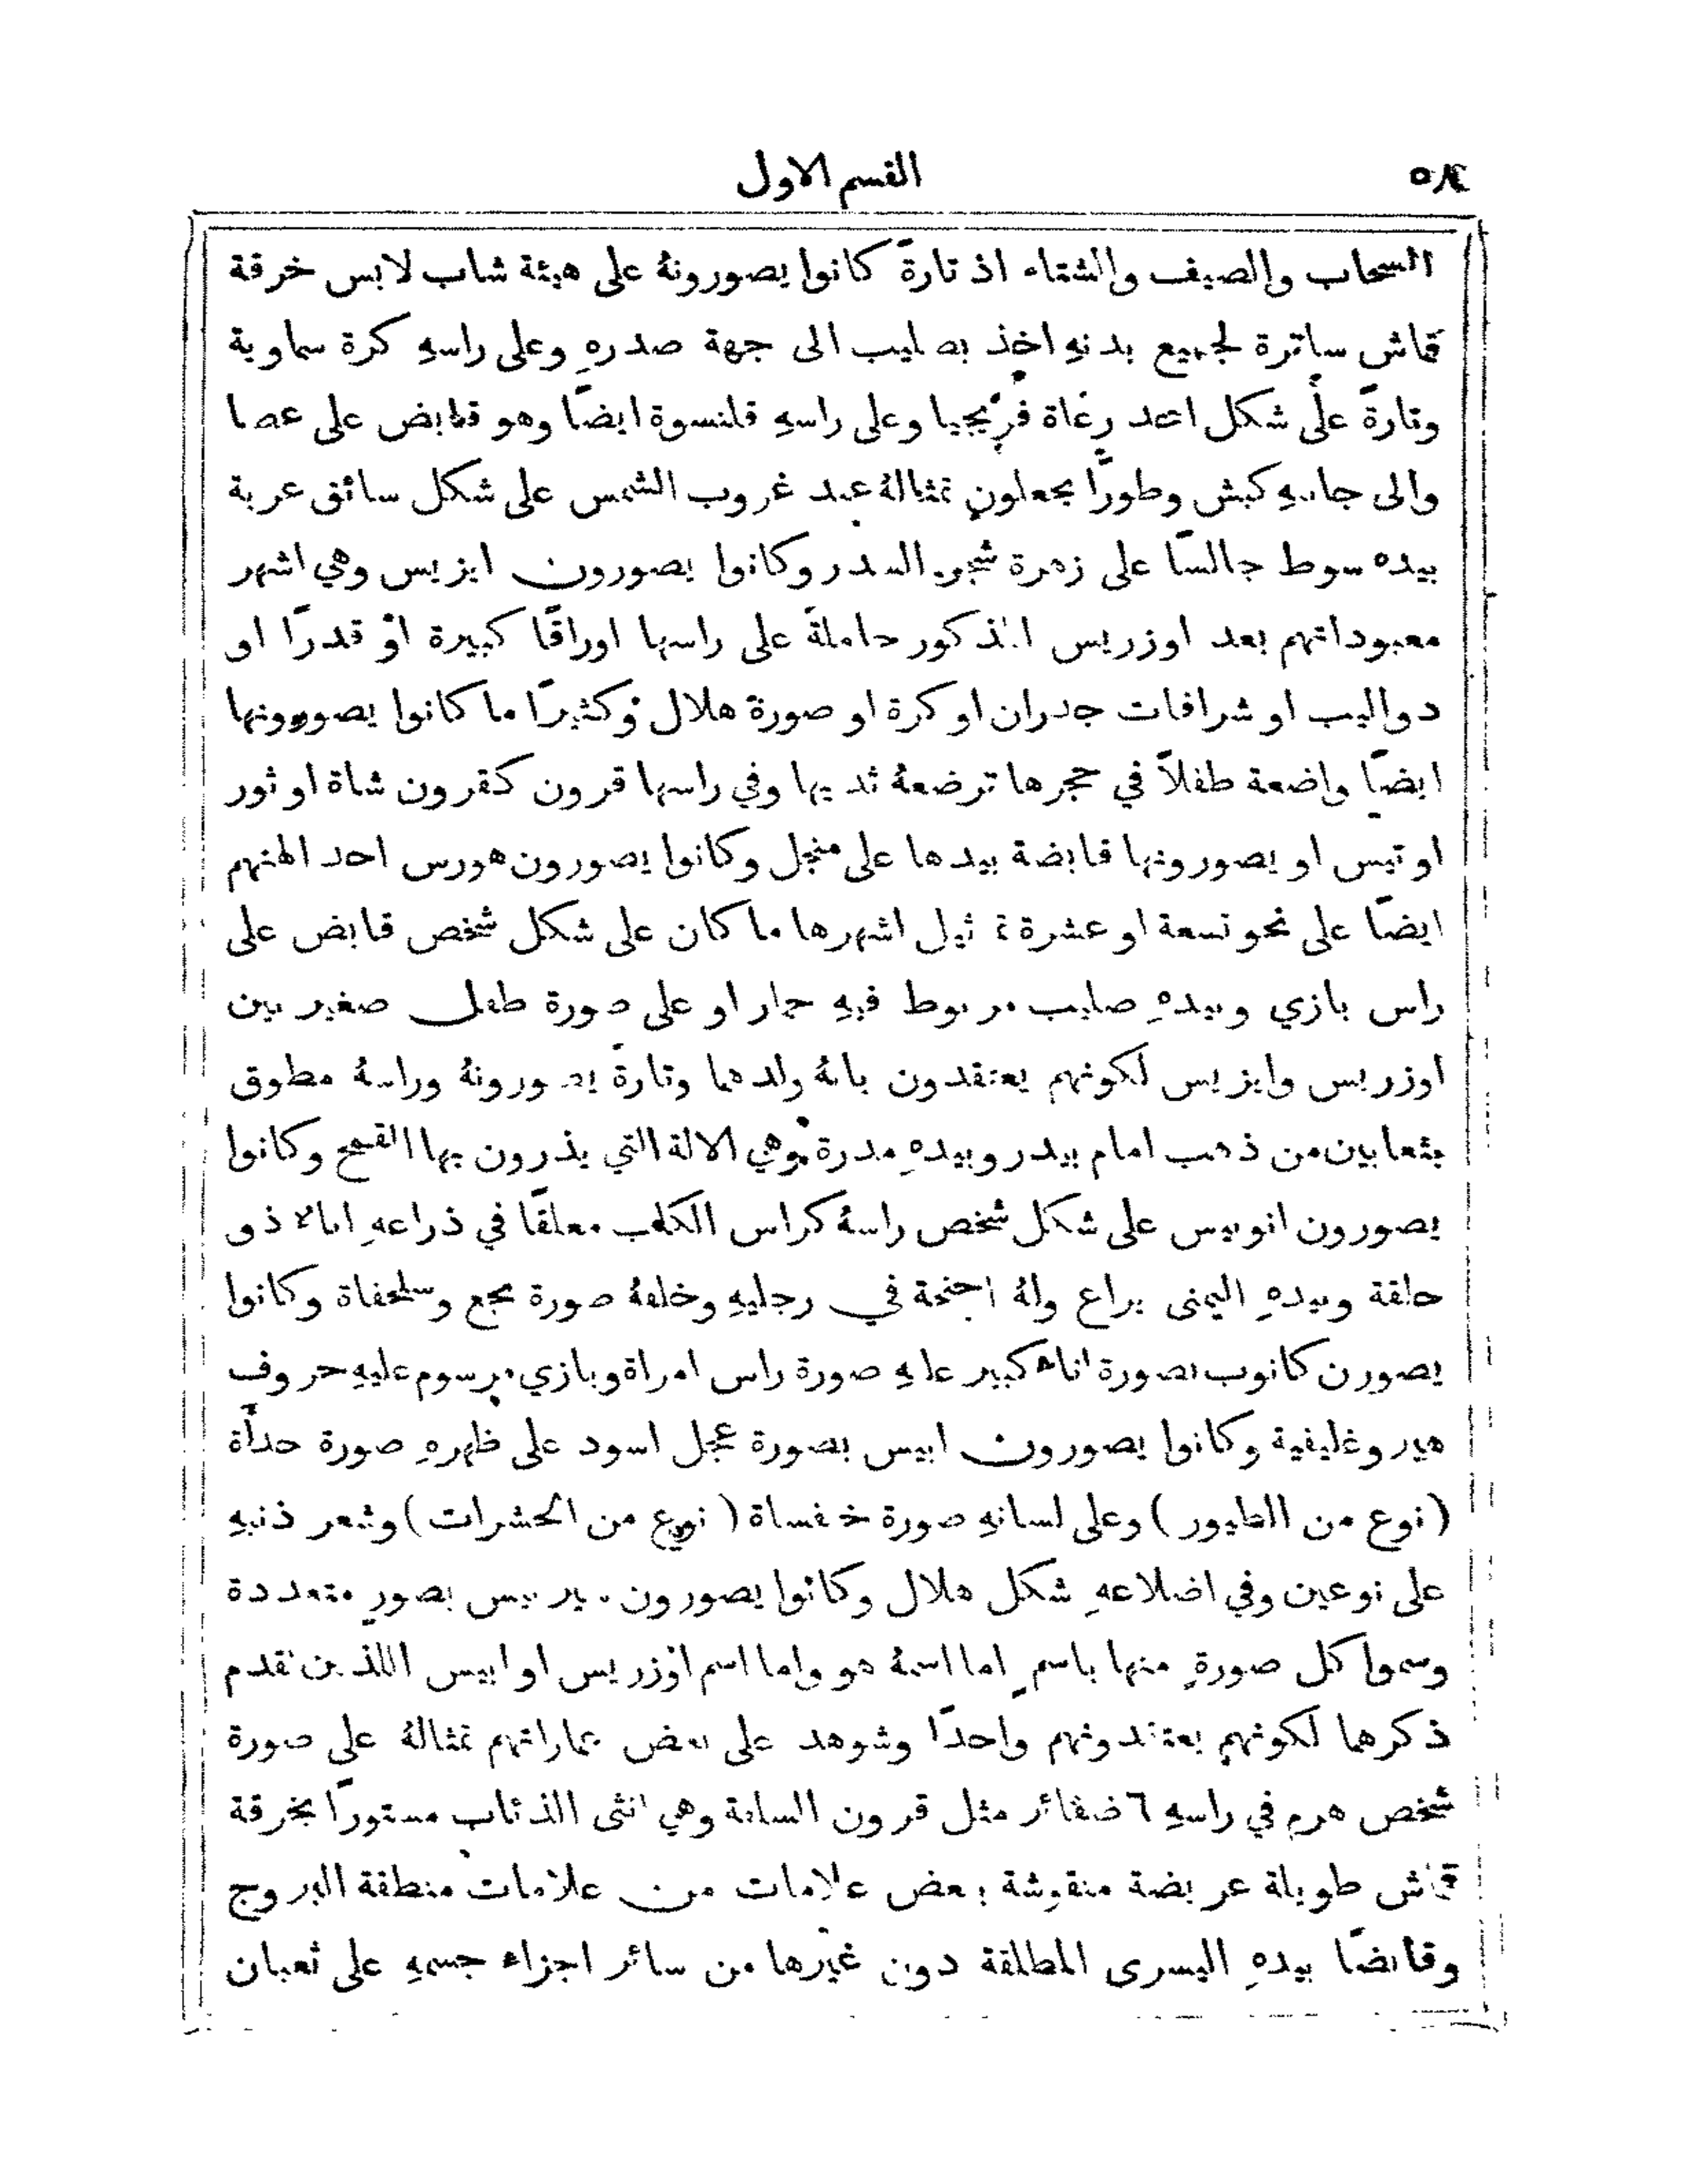 ٥٨ القسم الاول
السحاب والصيف والشتاء اذ تارةً كانوا يصورونهُ على هيئة شاب لابس خرقة
قماش ساترة لجميع بدنهِ اخذ بصليب الى جهة صدرهِ وعلى راسهِ كرة سماوية
وتارةً على شكل احد رعاة فريجيا وعلى راسهِ قلنسوة ايضًا وهو قابض على عصا
والى جانبهِ كبش وطورًا يجعلون تمثالهُ عند غروب الشمس على شكل سائق عربة
بيده سوط جالسًا على زهرة شجر السدر وكانوا يصورون ايزيس وهي اشهر
معبوداتهم بعد اوزريس المذكور حاملةً على راسها اوراقًا كبيرة او قدرًا او
دواليب او شرافات جدران او كرة او صورة هلال وكثيرًا ما كانوا يصورونها
ايضًا واضعة طفلاً في حجرها ترضعهُ ثديها وفي راسها قرون كقرون شاة او ثور
او تيس او يصورونها قابضة بيدها على منجل وكانوا يصورون هورس احد الهتهم
ايضًا على نحو تسعة او عشرة تماثيل اشهرها ما كان على شكل شخص قابض على
راس بازي وبيدهِ صليب مربوط فيهِ حمار او على صورة طفل صغير بين
اوزريس وايزيس لكونهم يعتقدون بانهُ ولدهما وتارةً يصورونهُ وراسهُ مطوق
بثعابين من ذهب امام بيدر وبيدهِ مدرة وهي الالة التي يذرون بها القمح وكانوا
يصورون انوبيس على شكل شخص راسهُ كراس الكلب معلقًا في ذراعهِ اناء ذو
حلقة وبيدهِ اليمنى يراع ولهُ اجنحة في رجليهِ وخلفهُ صورة بجع وسلحفاة وكانوا
يصورن كانوب بصورة اناء كبير عليهِ صورة راس امراة وبازي مرسوم عليهِ حروف
هيروغليفية وكانوا يصورون ابيس بصورة عجل اسود على ظهرهِ صورة حدأة
(نوع من الطيور) وعلى لسانهِ صورة خنفساة (نوع من الحشرات) وشعر ذنبهِ
على نوعين وفي اضلاعهِ شكل هلال وكانوا يصورون بصورٍ متعددة
وسموا كل صورةٍ منها باسمٍ اما اسمهُ هو واما اسم اوزريس او ابيس اللذين تقدم
ذكرهما لكونهم يعتقدونهم واحدًا وشوهد على بعض عماراتهم تمثالهُ على صورة
شخص هرم في راسهِ ٦ ضفائر مثل قرون السلقة وهي انثى الذئاب مستورًا بخرقة
قماش طويلة عريضة منقوشة ببعض علامات من علامات منطقة البروج
وقابضًا بيدهِ اليسرى المطلقة دون غيرها من سائر اجزاء جسمهِ على ثعبان